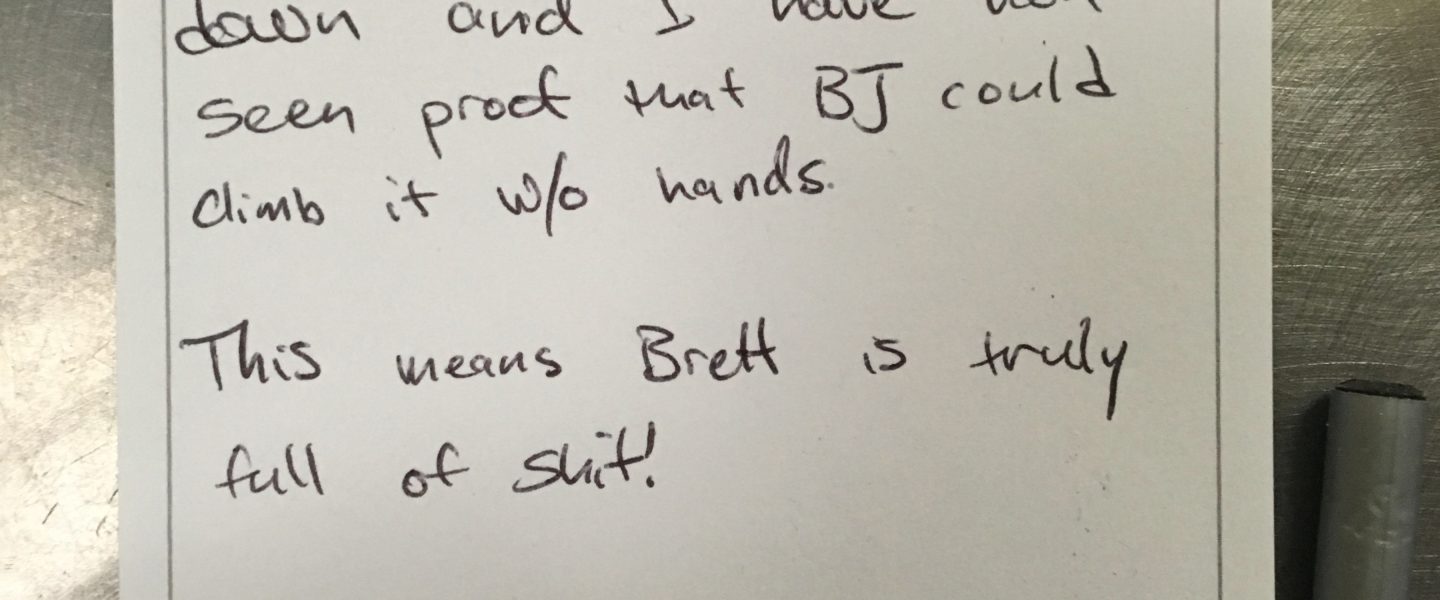 down and I have
seen proof that BJ could
climb it w/o hands.
This means Brett is truly
full of shit!